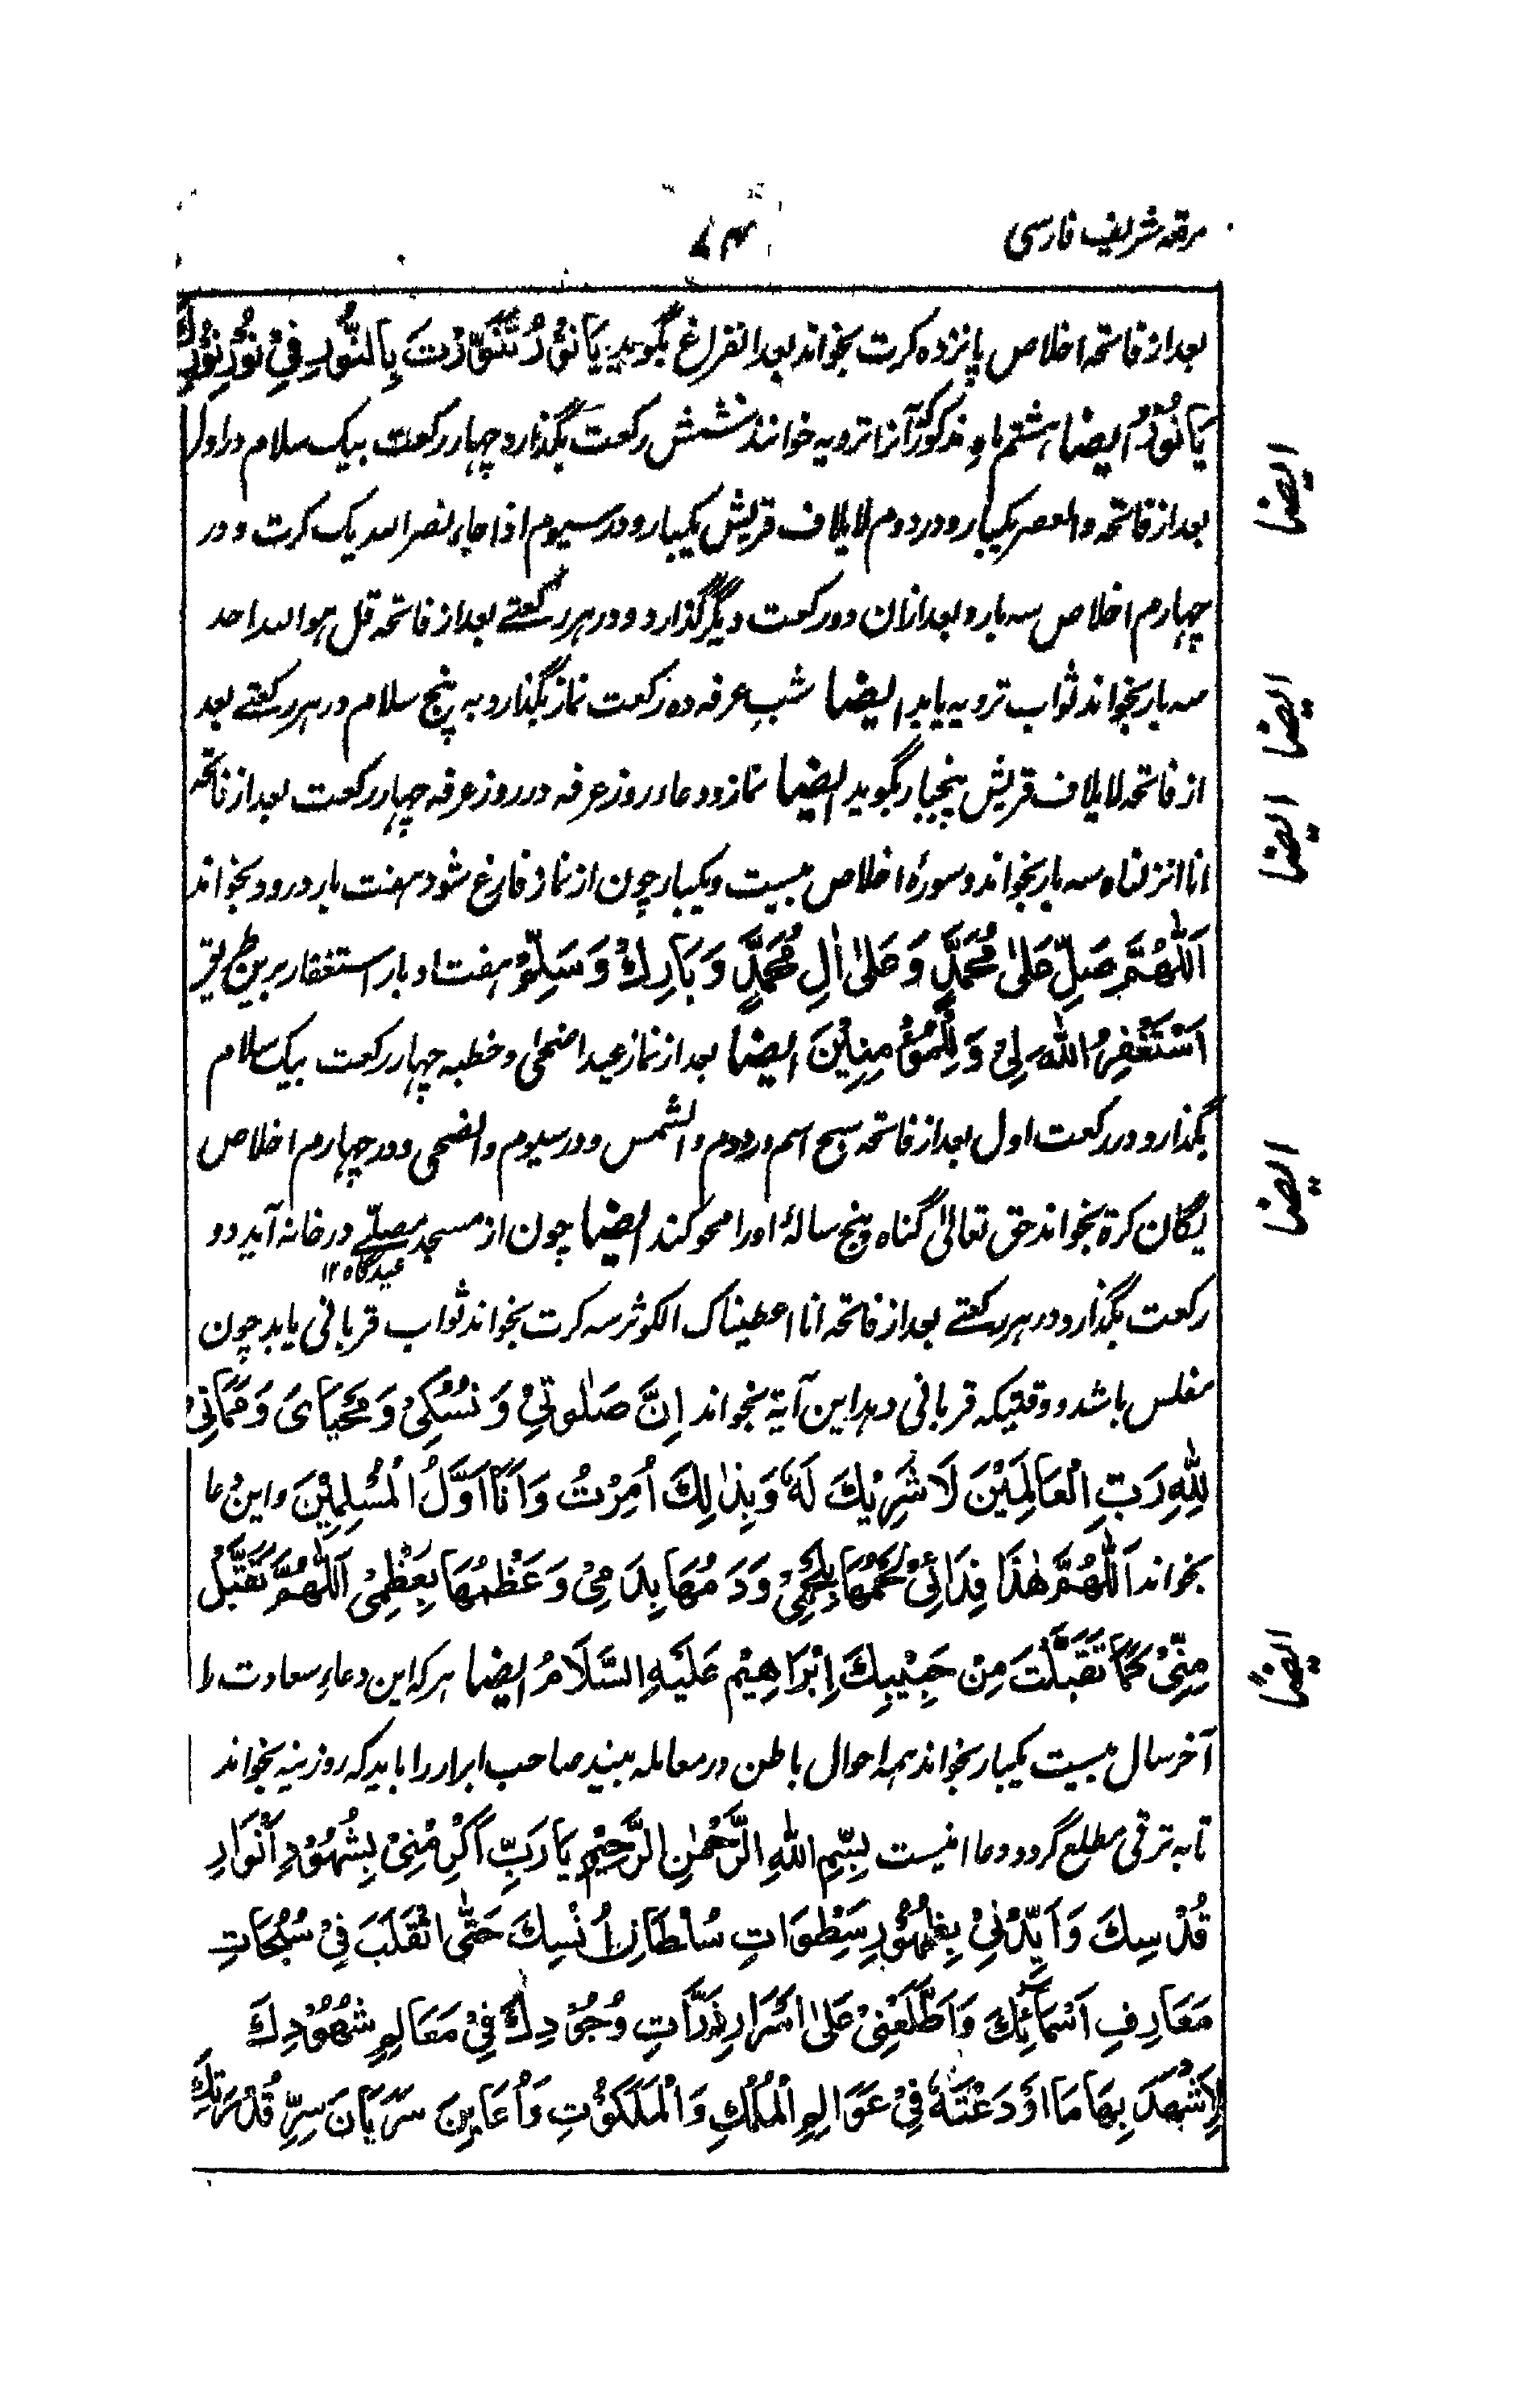 مرقعہ شریف فارسی
۷۴
بعد از فاتحہ اخلاص پانزده کرت بخواند بعد الفراغ بگوید یَا نُوْرُ تَنَوَّرْتَ بِالنُّوْرِ فِیْ نُوْرِ نُوْرِكَ
یَا نُوْرُ ایضا ہشتم ماہ مذکور آنرا ترویہ خوانند شش رکعت بگذارد چہار رکعت بیک سلام در اول
بعد از فاتحہ والعصر یکبار و در دوم لایلاف قریش یکبار و در سیوم اذا جاء نصر اللہ یک کرت و در
چہارم اخلاص سہ بار و بعد ازان دو رکعت دیگر گذارد و در ہر رکعتے بعد از فاتحہ قل ہو اللہ احد
سہ بار بخواند ثواب ترویہ یابد ایضا شب عرفہ ده رکعت نماز بگذارد بہ پنج سلام در ہر رکعتے بعد
از فاتحہ لایلاف قریش پنجبار بگوید ایضا نماز و دعاء روز عرفہ در روز عرفہ چہار رکعت بعد از فاتحہ
انا انزلناه سہ بار بخواند و سورۂ اخلاص بیست و یکبار چون از نماز فارغ شود ہفت بار درود بخواند
اَللّٰهُمَّ صَلِّ عَلٰی مُحَمَّدٍ وَ عَلٰی اٰلِ مُحَمَّدٍ وَ بَارِكْ وَ سَلِّمْ ہفتاد بار استغفار برین طریق
اَسْتَغْفِرُ اللّٰهَ لِیْ وَ لِلْمُؤْمِنِیْنَ ایضا بعد از نماز عید اضحی و خطبہ چہار رکعت بیک سلام
بگذارد در رکعت اول بعد از فاتحہ سبح اسم در دوم والشمس و در سیوم والضحی و در چہارم اخلاص
یگان کرة بخواند حق تعالیٰ گناه پنج سالۂ اورا محو کند ایضا چون از مسجد مصلّے در خانہ آید دو
عیدگاه ۱۲
رکعت بگذارد در ہر رکعتے بعد از فاتحہ انا اعطیناک الکوثر سہ کرت بخواند ثواب قربانی یابد چون
مفلس باشد و وقتیکہ قربانی دہد این آیة بخواند اِنَّ صَلٰوتِیْ وَ نُسُكِیْ وَ مَحْیَایَ وَ مَمَاتِیْ
لِلّٰهِ رَبِّ الْعَالَمِیْنَ لَا شَرِیْكَ لَهٗ وَ بِذٰلِكَ اُمِرْتُ وَ اَنَا اَوَّلُ الْمُسْلِمِیْنَ و این دعا
بخواند اَللّٰهُمَّ هٰذَا فِدَائِیْ لَحْمُهَا بِلَحْمِیْ وَ دَمُهَا بِدَمِیْ وَ عَظْمُهَا بِعَظْمِیْ اَللّٰهُمَّ تَقَبَّلْ
مِنِّیْ كَمَا تَقَبَّلْتَ مِنْ حَبِیْبِكَ اِبْرَاهِیْمَ عَلَیْهِ السَّلَامُ ایضا ہرکہ این دعاء سعادت را
آخر سال بیست یکبار بخواند ہمہ احوال باطن در معاملہ بیند صاحب ابرار را باید کہ روزینہ بخواند
تا بہ ترقی مطلع گردد دعا اینست بِسْمِ اللّٰهِ الرَّحْمٰنِ الرَّحِیْمِ یَا رَبِّ اَكْرِمْنِیْ بِشُهُوْدِ اَنْوَارِ
قُدْسِكَ وَ اَیِّدْنِیْ بِظُهُوْرِ سَطَوَاتِ سُلْطَانِ اُنْسِكَ حَتّٰی اَتَقَلَّبَ فِیْ سُبُحَاتِ
مَعَارِفِ اَسْمَائِكَ وَ اَطْلِعْنِیْ عَلٰی اَسْرَارِ ذَرَّاتِ وُجُوْدِكَ فِیْ مَعَالِمِ شُهُوْدِكَ
لِاَشْهَدَ بِهَا مَا اَوْدَعْتَهٗ فِیْ عَوَالِمِ الْمُلْكِ وَ الْمَلَكُوْتِ وَ اُعَایِنَ سَرَیَانَ سِرِّ قُدْرَتِكَ
ایضا
ایضا
ایضا
ایضا
ایضًا